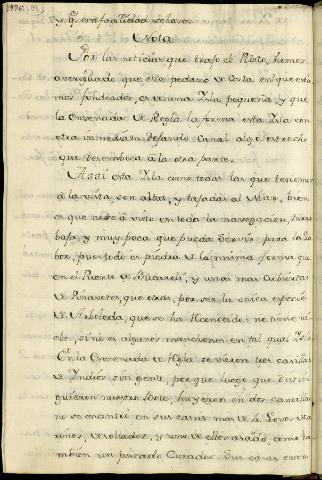 176.
y q.e con facilidad se haver.
Nota
Por las noticias que trajo el Piloto, hemos
averiguado que este pedazo de Costa en que esta
mos fondeados, es una Ysla pequeña, y que
la Ensenada de Regla la forma esta Ysla con
otra inmediata dejando Canal algo estrecho
que desemboca à la otra parte.
Assi esta Ysla como todas las que tenemos
à la vista son altas, y tajadas al Mar, bien
es que no se à visto en toda la navegacion, tierra
baja, y muy poca que pueda servir para la la
bor, pues todo es piedra de la misma forma que
en el Puerto de Bucareli, y unas mas cubiertas
de Pinavetes, que otras, por ser la unica especie
de Arboleda, que se ha reconocido: no tiene ni
ebe, sino es algunos manchones en tal qual Ysla
En la Ensenada de Regla se vieron tres casillas
de Yndios sin gente, porque luego que distin
guieron nuestro Bote, huyeron en dos canoillas,
no se encontró en sus casas mas de Lovos ma
rinos, desollados, y uno de ellos asado, como ta
mbien un pescado Curado. Sus casas eran